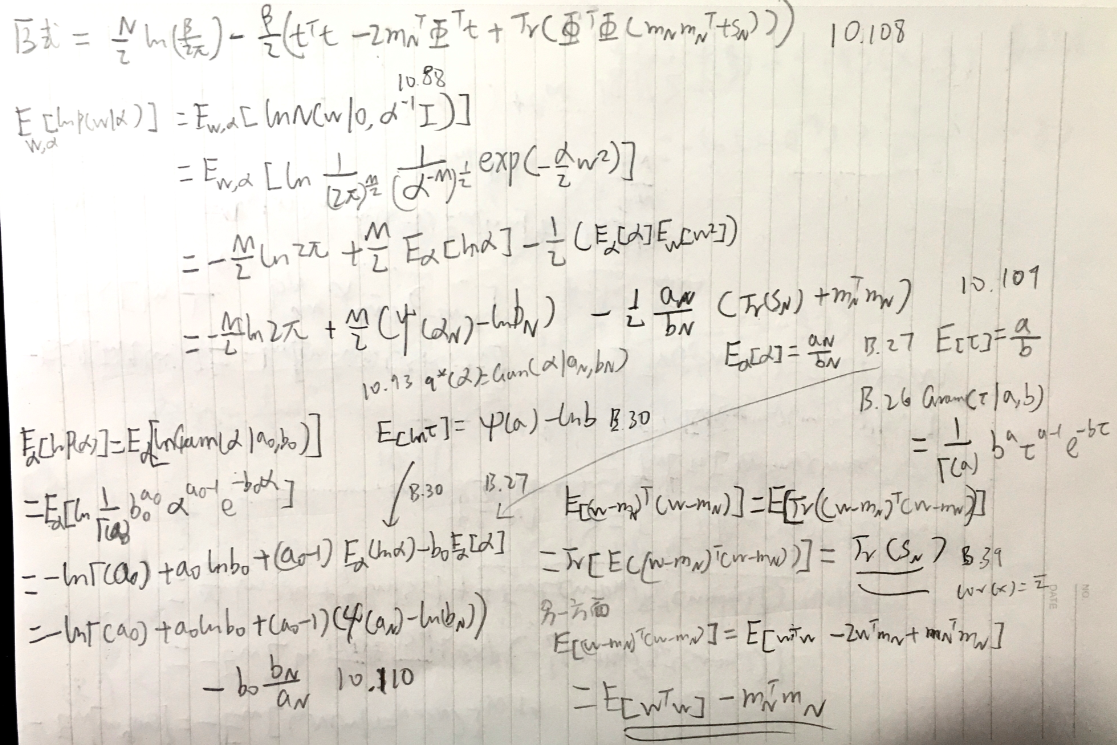 原式 = N/2 ln(β/2π) - β/2 (tᵀt - 2m_Nᵀ Φᵀt + Tr(ΦᵀΦ(m_N m_Nᵀ + S_N))) 10.108
10.88
E_{w,α}[ln p(w|α)] = E_{w,α}[ln N(w|0, α⁻¹I)]
= E_{w,α}[ln 1/(2π)^{M/2} 1/(α^{-M})^{1/2} exp(-α/2 w²)]
= -M/2 ln 2π + M/2 E_α[ln α] - 1/2 (E_α[α] E_w[w²])
= -M/2 ln 2π + M/2 (ψ(a_N) - ln b_N) - 1/2 a_N/b_N (Tr(S_N) + m_Nᵀ m_N) 10.109
E_α[α] = a_N/b_N B.27 E[τ] = a/b
10.93 q*(α) = Gam(α|a_N, b_N)
B.26 Gam(τ|a,b)
= 1/Γ(a) b^a τ^{a-1} e^{-bτ}
E[ln τ] = ψ(a) - ln b B.30
E_α[ln p(α)] = E_α[ln Gam(α|a₀, b₀)]
= E_α[ln 1/Γ(a₀) b₀^{a₀} α^{a₀-1} e^{-b₀α}]
B.30 B.27
= -lnΓ(a₀) + a₀ ln b₀ + (a₀-1) E_α(ln α) - b₀ E_α[α]
= -lnΓ(a₀) + a₀ ln b₀ + (a₀-1)(ψ(a_N) - ln(b_N))
- b₀ b_N/a_N 10.110
E[(w-m_N)ᵀ(w-m_N)] = E[Tr((w-m_N)ᵀ(w-m_N))]
= Tr[E((w-m_N)ᵀ(w-m_N))] = Tr(S_N) B.39
cov(x) = Σ
另一方面
E[(w-m_N)ᵀ(w-m_N)] = E[wᵀw - 2wᵀm_N + m_Nᵀ m_N]
= E[wᵀw] - m_Nᵀ m_N
NO.
DATE